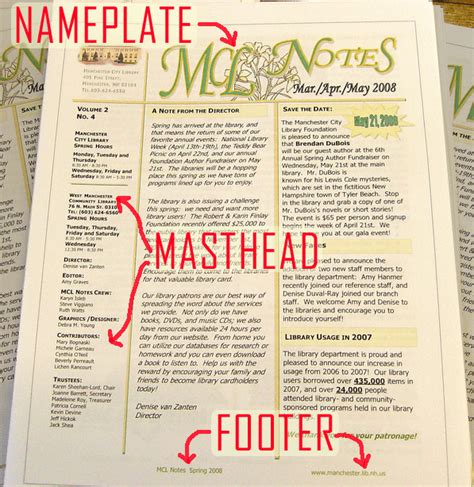 NAMEPLATE
MCL NOTES
Mar./Apr./May 2008
MANCHESTER CITY LIBRARY
405 PINE STREET
VOLUME 2
No. 4
MANCHESTER
CITY LIBRARY
SPRING HOURS
Monday, Tuesday and
Thursday
8:30 PM - 8:30 PM
Wednesday, Friday and
Saturday
WEST MANCHESTER
COMMUNITY LIBRARY
76 N. MAIN ST. 03102
TEL: (603) 624-6560
SPRING HOURS
Tuesday, Thursday,
Friday and Saturday
Wednesday
DIRECTOR:
Denise van Zanten
EDITOR:
Amy Graves
MCL NOTES CREW:
Karyn Isleb
Steve Viggiano
Ruth Watts
GRAPHICS/DESIGNER:
Debra M. Young
CONTRIBUTORS:
Mary Bognaski
Michele Garneau
Cynthia O'Neil
Beverly Perreault
Lichen Rancourt
TRUSTEES:
Karen Sheehan-Lord, Chair
Joanne Barrett, Secretary
Madeleine Roy, Treasurer
Patricia Cornell
Kevin Devine
Jeff Hickok
Jack Shea
A NOTE FROM THE DIRECTOR
Spring has arrived at the library, and
that means the return of some of our
favorite annual events. National Library
Week (April 13th-19th), the Teddy Bear
Picnic on April 22nd, and our annual
Foundation Author Fundraiser on May
21st. The libraries will be a hopping
place this spring as we have tons of
programs lined up for you to enjoy.
The library is also issuing a challenge
this spring: we need and want more
library users! The Robert & Karin Finlay
Foundation recently offered $25,000 to
MASTHEAD
Encourage them to come to the libraries
for that valuable library card.
Our library patrons are our best way of
spreading the word about the services
we provide. Not only do we have
books, DVDs, and music CDs; we also
have resources available 24 hours per
day from our website. From home you
can utilize our databases for research or
homework and you can even download
a book to listen to. Help us with the
reward by encouraging your family and
friends to become library cardholders
today!
Denise van Zanten
Director
SAVE THE DATE:
May 21, 2008
The Manchester City
Library Foundation
is pleased to
announce that
Brendan DuBois
will be our guest author at the 6th
Annual Spring Author Fundraiser on
Wednesday, May 21st at the main
library. Mr. DuBois is
known for his Lewis Cole mysteries,
which are set in the fictitious New
Hampshire town of Tyler Beach. Stop
by and get a copy of one of
Mr. DuBois's novels or short stories!
The event is $65 per person and signup
begins the week of April 18th.
NEW FACES
The library is pleased to announce two
new full time staff members: Amy Hanmer
recently joined our reference staff, and
Denise Duval-Ray joined our branch
staff. We welcome Amy and Denise to
the library and wish them success.
LIBRARY USAGE IN 2007
The library department is proud and
pleased to announce our increase in
usage from 2006 to 2007. Our library
users borrowed over 435,000 items in
2007, and over 24,000 people
attended library- and community-
sponsored programs at the library.
for your patronage!
FOOTER
MCL Notes Spring 2008
www.manchester.lib.nh.us